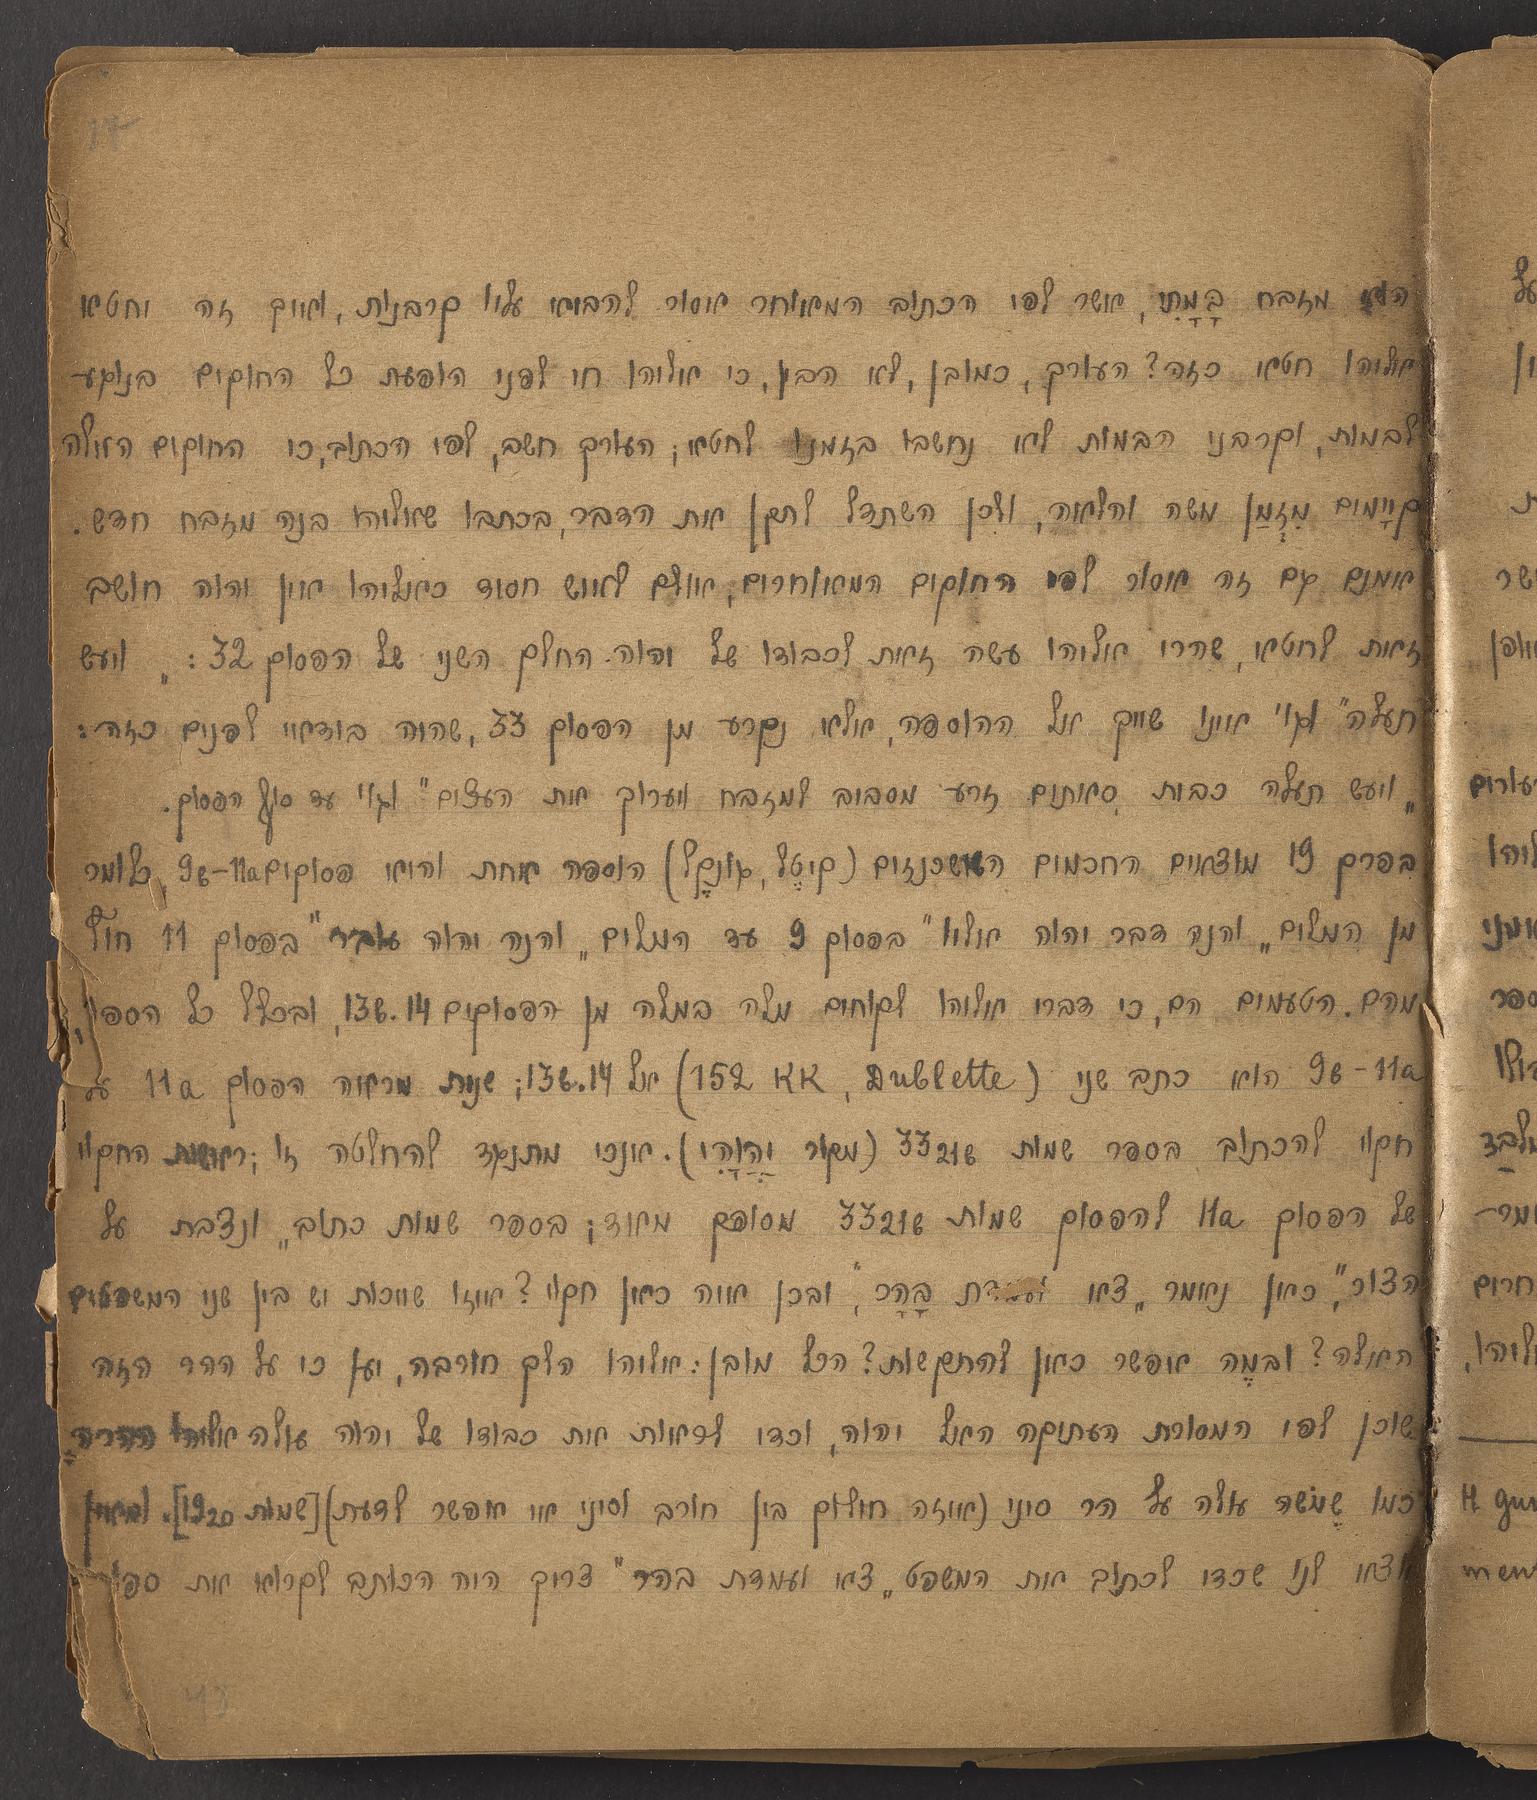 17
הוא מזבח בָּמָתִי, אשר לפי הכתוב המאוחר אסור להביא עליו קרבנות, ואיך זה יחטא
אליהו חטא כזה? העורך, כמובן, לא הבין, כי אליהו חי לפני הופעת כל החוקים בנוגע
לבמות, וקרבני הבמות לא נחשבו בזמנו לחטא; העורך חשב, לפי הכתוב, כי החוקים האלה
קיָימים מִזְמַן משה והלאה, ולכן השתדל לתקן את הדבר, בכתבו שאליהו בנה מזבח חדש.
אמנם גם זה אסור לפי החוקים המאוחרים, אולם לאיש חסיד כאליהו אין יהוה חושב
זאת לחטא, שהרי אליהו עשה זאת לכבודו של יהוה. החלק השני של הפסוק 32: „ויעש
תעלה" וגו' אינו שייך אל ההוספה, אלא נקרע מן הפסוק 33, שהיה בודאי לפנים כזה:
„ויעש תעלה כבית סאתים זרע מסביב למזבח ויערוך את העצים" וגו' עד סוף הפסוק.
בפרק 19 מוצאים החכמים האשכנזים (קיטֶל, גונקֶל) הוספה אחת והיא פסוקים 9b–11a, כלומר
מן המלים „והנה דבר יהוה אליו" בפסוק 9 עד המלים „והנה יהוה עובר" בפסוק 11 חוץ
מהם. הטעמים הם, כי דברי אליהו לקוחים מלה במלה מן הפסוקים 13b.14, ובכלל כל הספור
9b–11a הוא כתב שני (Dublette, KK 152) אל 13b.14; שנית מראה הפסוק 11a על
חקוי להכתוב בספר שמות 33 21b (מקור יַהֲוִהִי). אנכי מתנגד להחלטה זו; ראשית החקוי
של הפסוק 11a להפסוק שמות 33 21b מסופק מאוד; בספר שמות כתוב „ונצבת על
הצור", כאן נאמר „צא ועמדת בָּהָר", ובכן איזה כאן חקוי? איזו שייכות יש בין שני המשפטים
האלה? ובמֶה אפשר כאן להתקשות? הכל מובן: אליהו הלך חורבה, יען כי על ההר הזה
שוכן לפי המסורת העתיקה האל יהוה, וכדי לראות את כבודו של יהוה עולה אליהו ההרה
כמו שֶמֹשֶה עולה על הר סיני (איזה חילוק בין חורב וסיני אי אפשר לדעת) [שמות 19 20].
יצא לנו שכדי לכתוב את המשפט „צא ועמדת בהר" צריך היה הכותב לקרוא את ספר